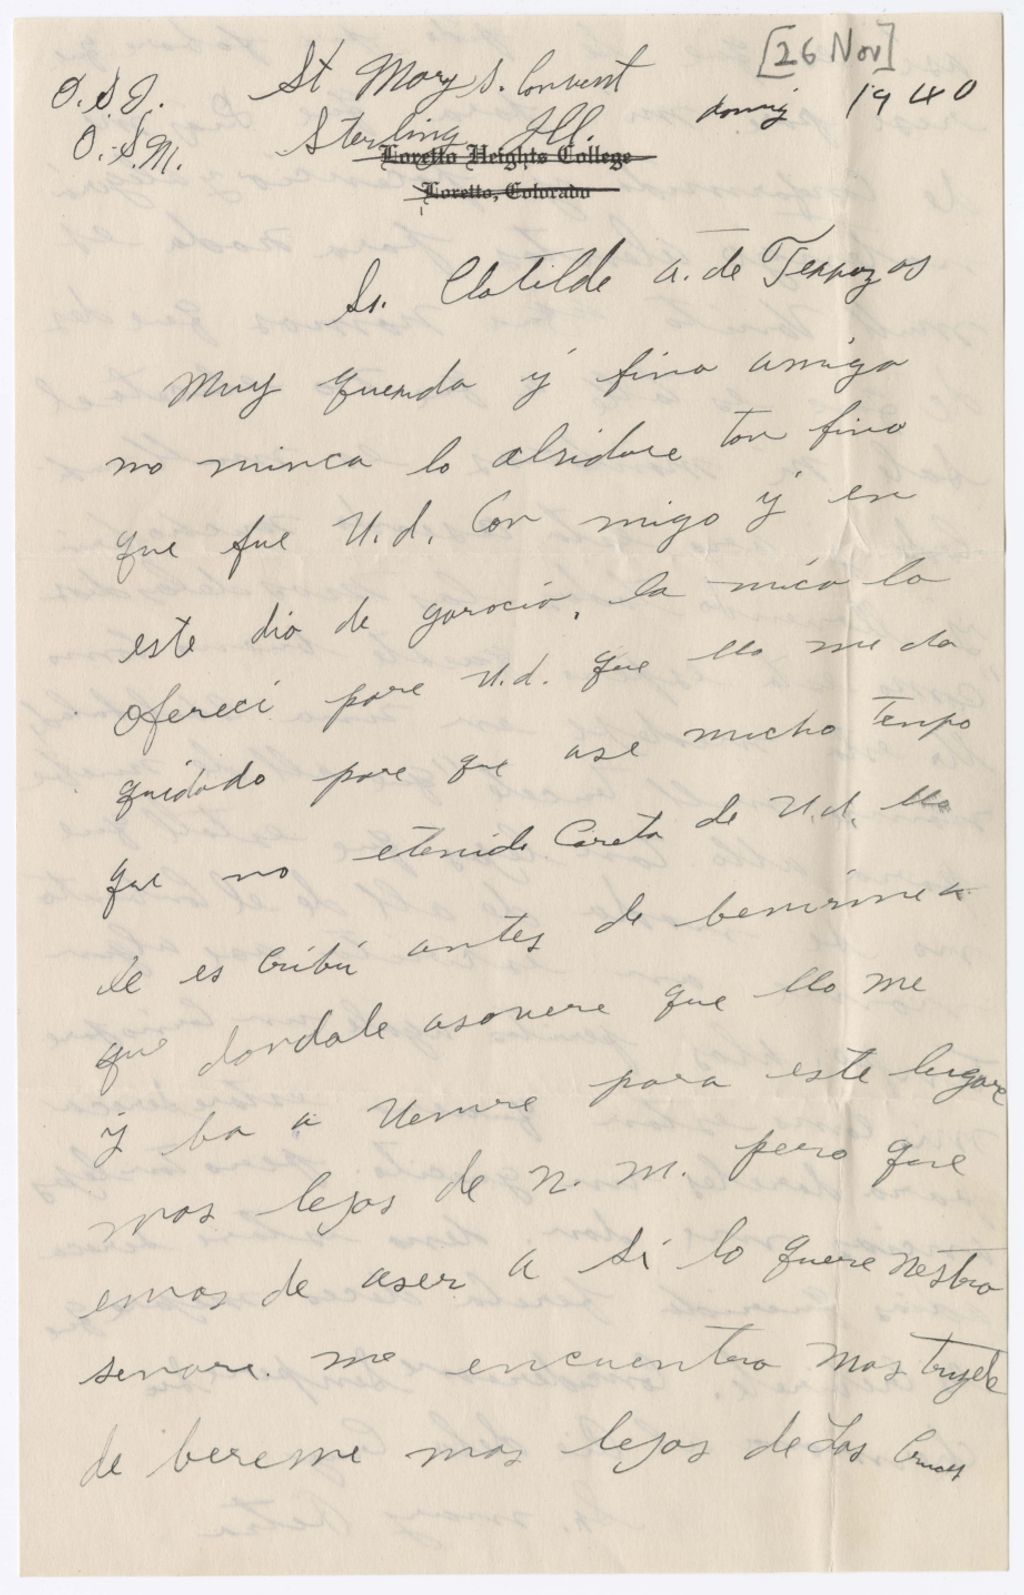 [26 Nov]
O. S. J. St Marys. Convent 1940
O. S. M. Sterling Ill.
Loretto Heights College
Loretto, Colorado
Sr. Clotilde A. de Terrazas
Muy querida y fina amiga
no nunca lo olvidare tan fino
que fue U.d. Con migo y en
este dia de garacia, la mica la
Ofereci pare U.d. que llo me da
quidado pare que ase mucho Tenpo
que no etenido Careta de U.d. llo
le es Cribú antes de benirme a
que dandale asavere que llo me
y ba a Venire para este lugare
mas lejos de N. M. pero que
emos de aser a si lo quere nestro
senore. me encuentro mas tryste
de bereme mas lejos de Las Cruces